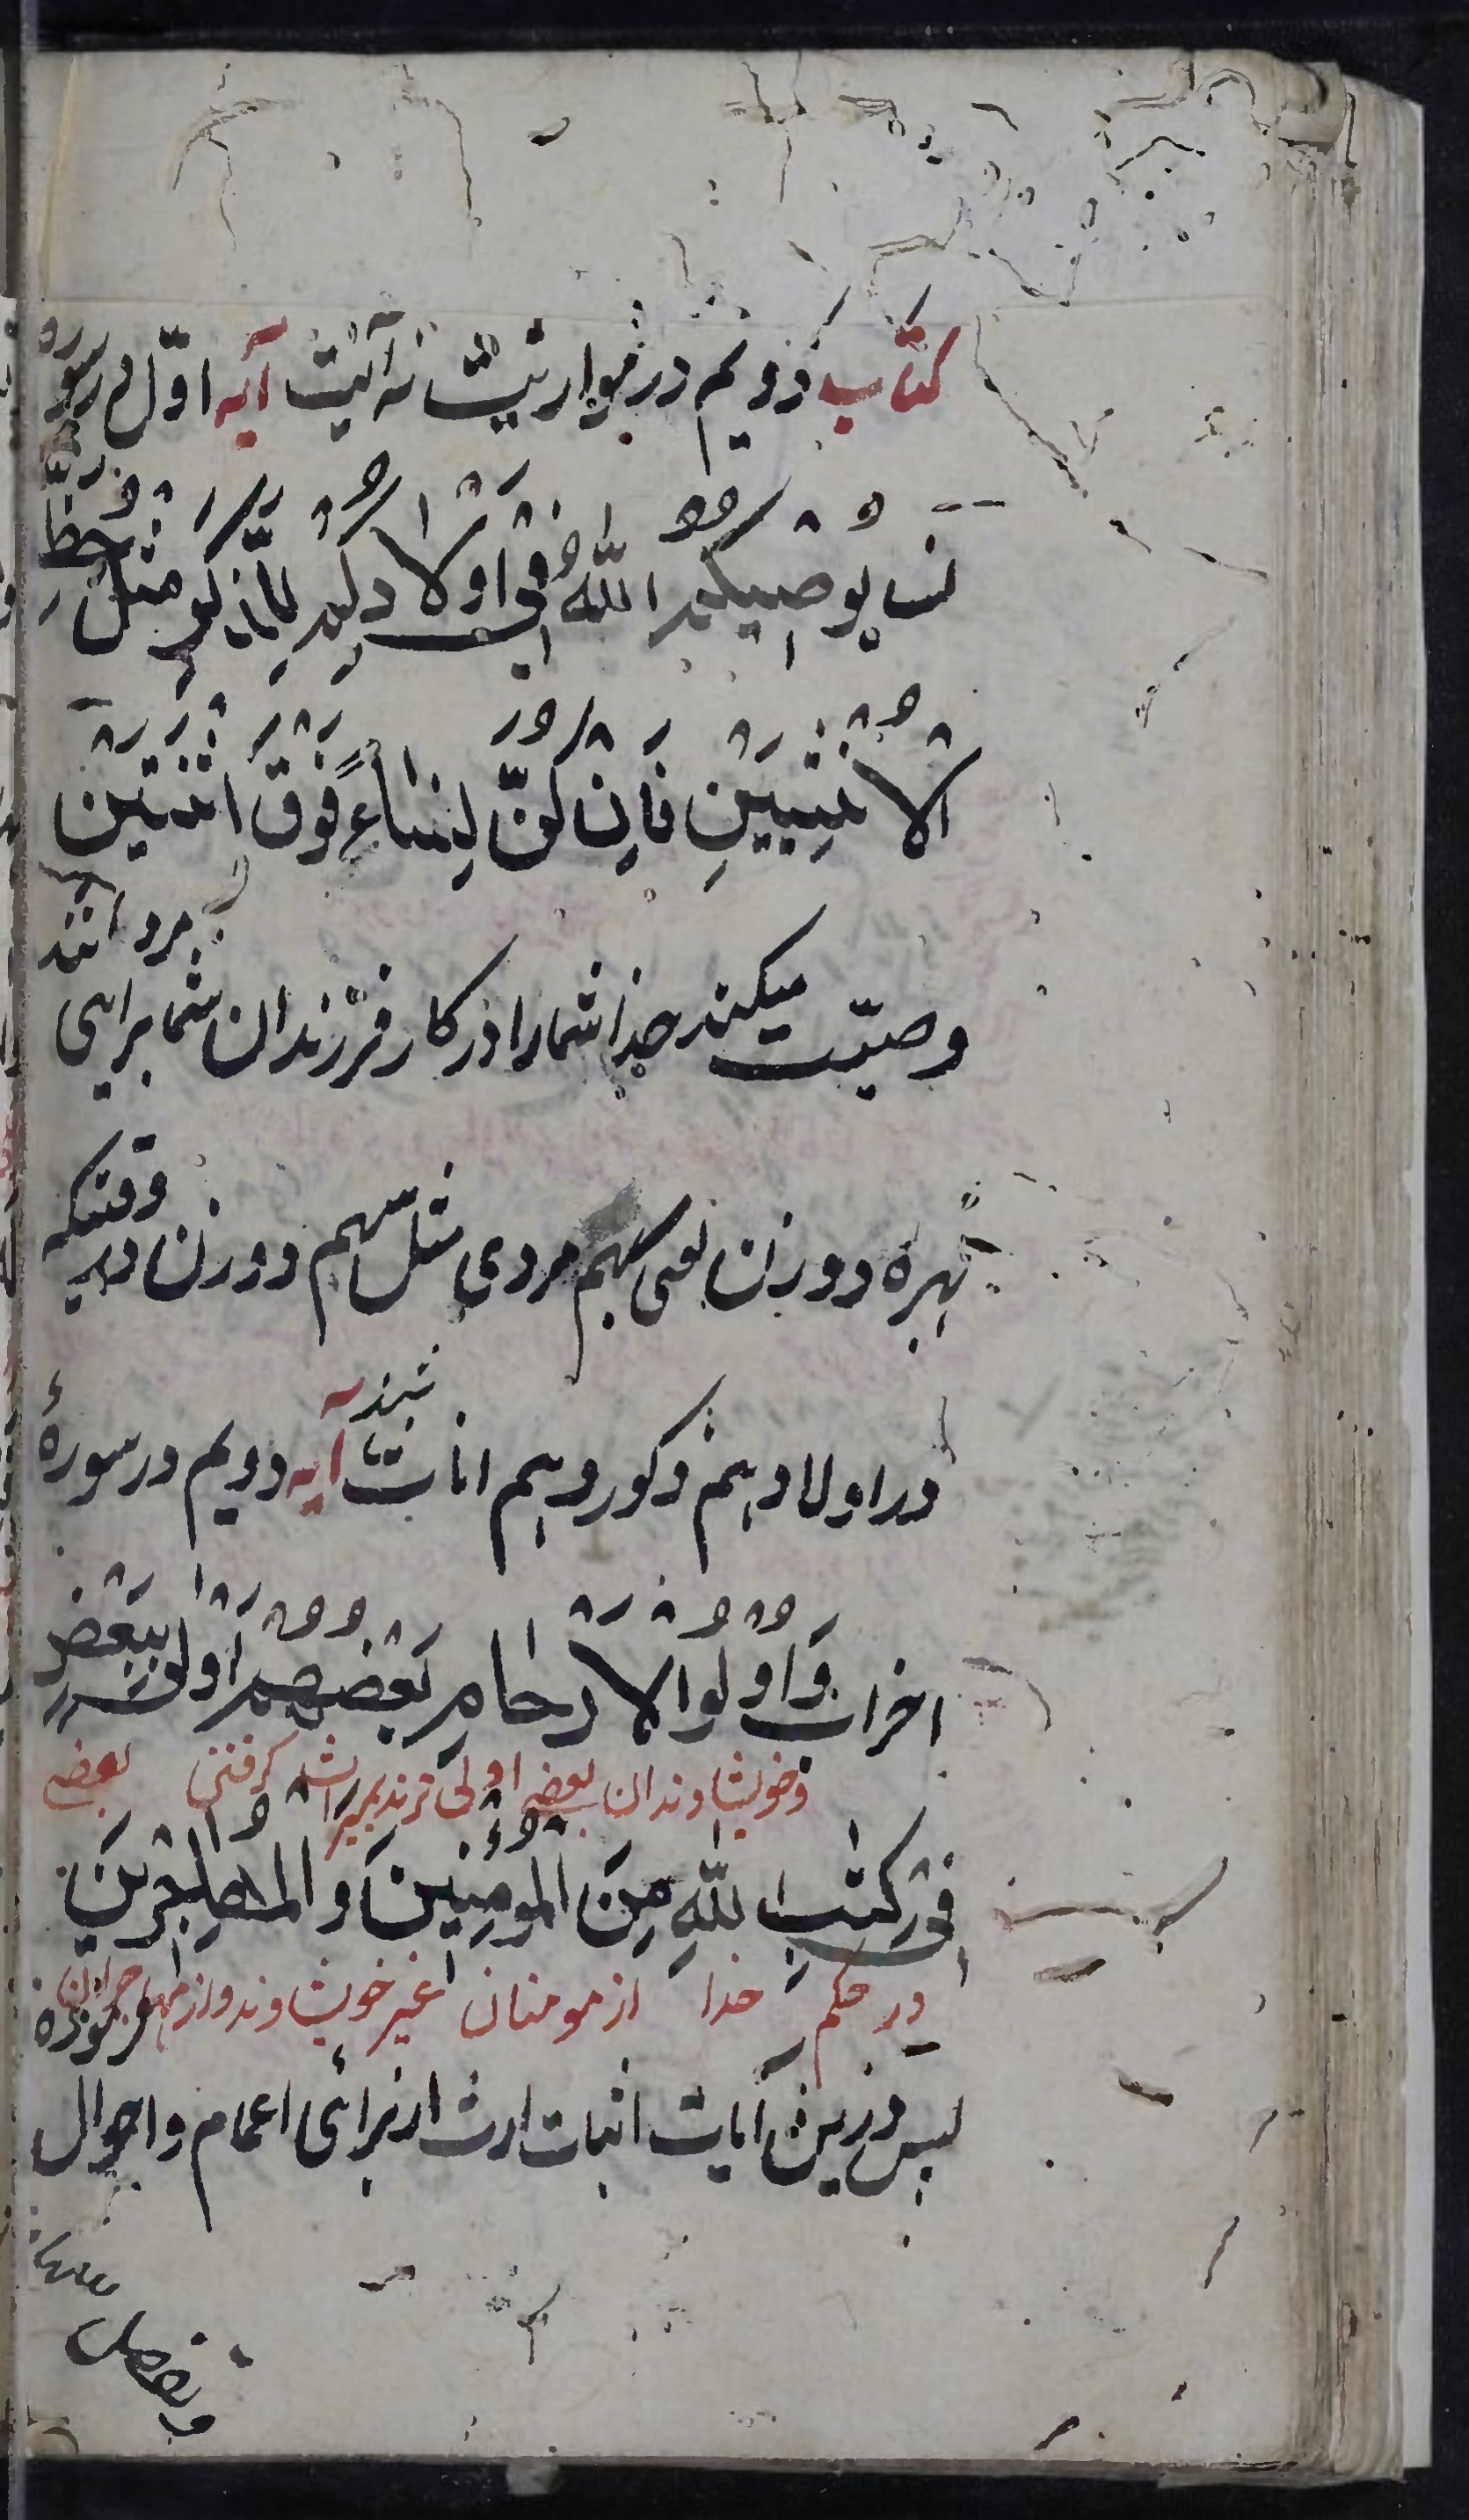 کتاب دویم در مواریث نه آیت آیه اوّل در سوره
نسا یُوصِیکُمُ اللّٰهُ فِی اَوْلَادِکُمْ لِلذَّکَرِ مِثْلُ حَظِّ
الْاُنْثَیَیْنِ فَاِنْ کُنَّ نِسَاءً فَوْقَ اثْنَتَیْنِ
وصیّت میکند خدا شما را در کار فرزندان شما برای مرد مانند
بهره دو زن یعنی سهم مردی مثل سهم دو زن در وقتیکه
در اولاد هم ذکور و هم اناث باشند آیه دویم در سورۀ
احزاب وَاُولُوا الْاَرْحَامِ بَعْضُهُمْ اَوْلٰی بِبَعْضٍ
وخویشاوندان بعضی اولی ترند بمیراث گرفتن بعضی
فِی کِتٰبِ اللّٰهِ مِنَ الْمُؤْمِنِینَ وَ الْمُهَاجِرِینَ
در حکم خدا از مومنان غیر خویشاوند و از مهاجران
پس درین آیات اثبات ارث از برای اعمام و اخوال فرموده